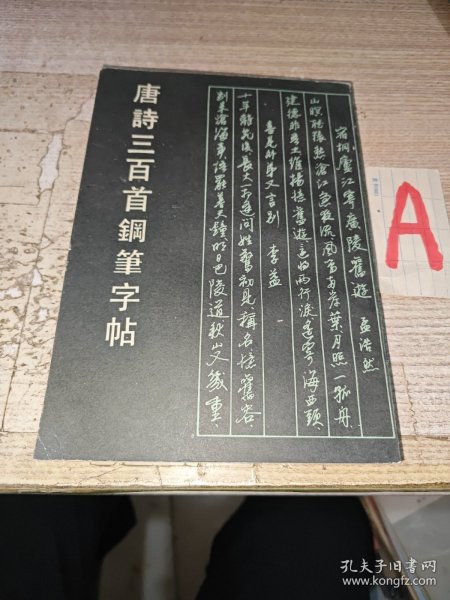 唐詩三百首鋼筆字帖
宿桐廬江寄廣陵舊遊 孟浩然
山暝聽猿愁滄江急夜流風鳴兩岸葉月照一孤舟
建德非吾土維揚憶舊遊還將兩行淚遙寄海西頭
喜見外弟又言別 李益
十年離亂後長大一相逢問姓驚初見稱名憶舊容
別來滄海事語罷暮天鐘明日巴陵道秋山又幾重
A
孔夫子旧书网
www.kongfz.com